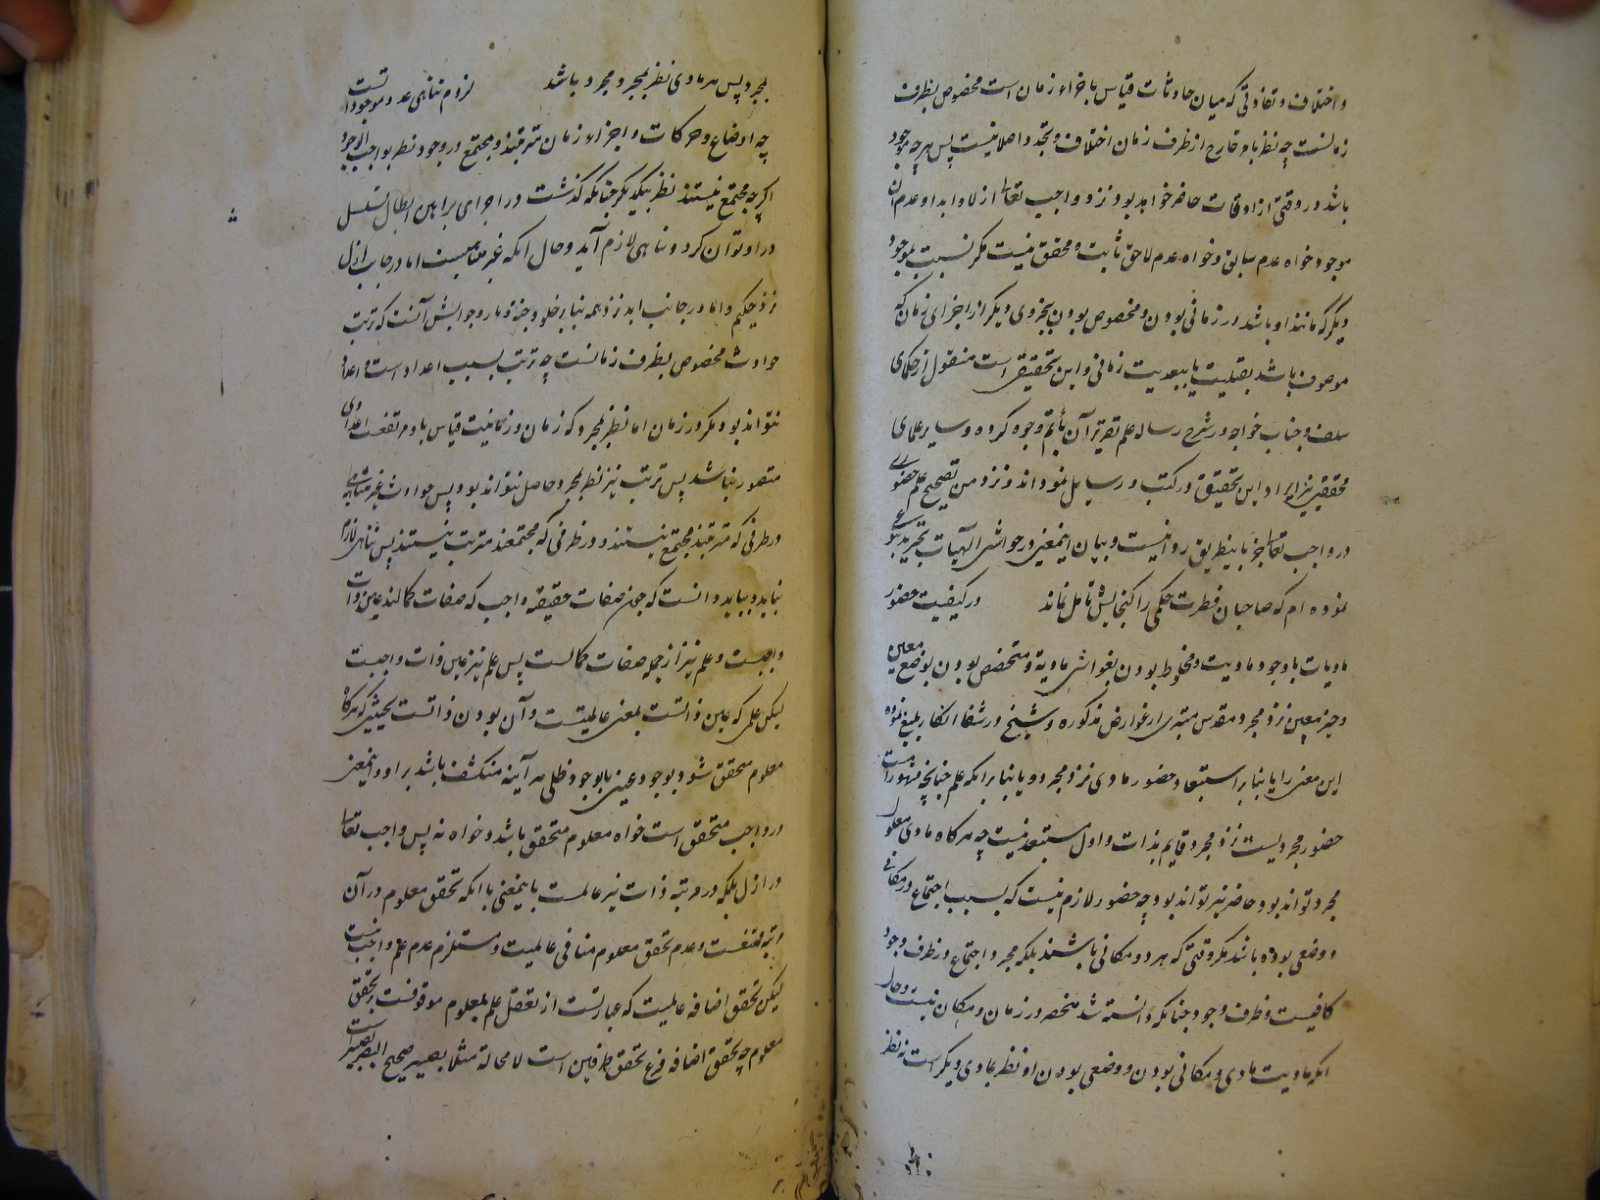 و اختلاف و تفاوتی که میان حادثات قیاس باجزاء زمان است مخصوص بظرف
زمانست چه نظر بامر خارج از ظرف زمان اختلاف و تجدد اصلا نیست پس هر چه موجود
باشد در وقتی از اوقات حاضر خواهد بود نزد واجب تعالی ازلا و ابدا و عدم آن
موجود خواه عدم سابق و خواه عدم لاحق ثابت و محقق نیست مگر نسبت بموجود
دیگر که مانند او باشد در زمانی بودن و مخصوص بودن بجزوی دیگر از اجزای زمان که
موصوف باشد بقبلیت یا ببعدیت زمانی و این تحقیقی است منقول از حکمای
سلف و جناب خواجه در شرح رساله علم تقریر آن باتم وجوه کرده و سایر علمای
محققین نیز ایراد این تحقیق در کتب و رسایل نموده‌اند و نزد من تصحیح علم حضوری
در واجب تعالی جز باینطریق روا نیست و بیان اینمعنی در حواشی الهیات تجرید بنحوی
نموده ام که صاحبان فطرت حکمی را گنجایش تامل نماند در کیفیت حضور
مادیات با وجود مادیت و مخلوط بودن بغواشی مادیة و متخصص بودن بوضع معین
و حیز معین نزد مجرد مقدس مبری از عوارض مذکوره و شیخ در شفا انکار بلیغ نموده
این معنی را یا بنا بر استبعاد حضور مادی نزد مجرد و یا بنا بر آنکه علم چنانچه مشهور است
حضور مجردیست نزد مجرد قایم بذات و اول مستبعد نیست چه هر گاه مادی معلول
مجرد تواند بود حاضر نیز تواند بود چه حضور لازم نیست که بسبب اجتماع در مکانی
و وضعی بوده باشد مگر وقتی که هر دو مکانی باشند بلکه مجرد اجتماع در ظرف وجود
کافیست و ظرف وجود چنانکه دانسته شد منحصر در زمان و مکان نیست و حال
آنکه مادیت مادی و مکانی بودن و وضعی بودن او نظر بمادی دیگر است نه نظر
بمجرد پس هر مادی نظر بمجرد مجرد باشد لزوم تناهی عدد موجوداتست
چه اوضاع و حرکات و اجزاء زمان مترتبند و مجتمع در وجود نظر بواجب الوجود
اگر چه مجتمع نیستند نظر بیکدیگر چنانکه گذشت در اجرای براهین ابطال تسلسل
در او توان کرد و تناهی لازم آید و حال آنکه غیر متناهیست اما در جانب ازل
نزد حکیم و اما در جانب ابد نزد همه بنا بر خلود جنة و نار و جوابش آنست که ترتب
حوادث مخصوص بظرف زمانست چه ترتب بسبب اعداد است و اعداد
نتواند بود مگر در زمان اما نظر بمجرد که زمان و زمانیت قیاس باو مرتفعست اعدادی
متصور نباشد پس ترتب نیز نظر بمجرد حاصل نتواند بود پس حوادث غیر متناهیه
در ظرفی که مترتبند مجتمع نیستند و در ظرفی که مجتمعند مترتب نیستند پس تناهی لازم
نیاید و بباید دانست که چون صفات حقیقیه واجب که صفات کمالند عین ذات
واجبست و علم نیز از جمله صفات کمالست پس علم نیز عین ذات واجبست
لیکن علمی که عین ذاتست بمعنی عالمیتست و آن بودن ذاتست بحیثیتی که هر گاه
معلوم متحقق شود بوجود عینی یا بوجود ظلی هر آینه منکشف باشد بر او و اینمعنی
در واجب متحقق است خواه معلوم متحقق باشد و خواه نه پس واجب تعالی
در ازل بلکه در مرتبه ذات نیز عالمست باینمعنی با آنکه تحقق معلوم در آن
مرتبه ممتنعست و عدم تحقق معلوم منافی عالمیت و مستلزم عدم علم واجب نیست
لیکن تحقق اضافه عالمیت که عبارتست از تعلق علم بمعلوم موقوفست بر تحقق
معلوم چه تحقق اضافه فرع تحقق طرفین است لا محالة مثلا بصیر صحیح البصر بصیر است